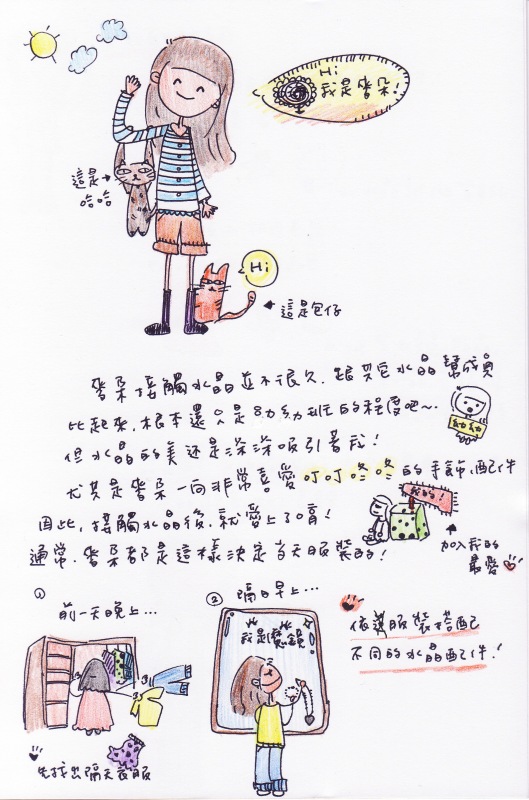 Hi
我是麥朵!
這是
哈哈
Hi
這是包仔
麥朵接觸水晶並不很久.跟其它水晶幫成員
比起來,根本還只是幼幼班的程度吧~.
幼幼
但水晶的美還是深深吸引著我!
尤其是麥朵一向非常喜愛叮叮咚咚的手飾.配件
因此,接觸水晶後.就愛上了唷!
我的!
加入我的
最愛
通常.麥朵都是這樣決定當天服裝的!
① 前一天晚上...
先找出隔天衣服
② 隔日早上...
我是魔鏡!
依據服裝搭配
不同的水晶配件!